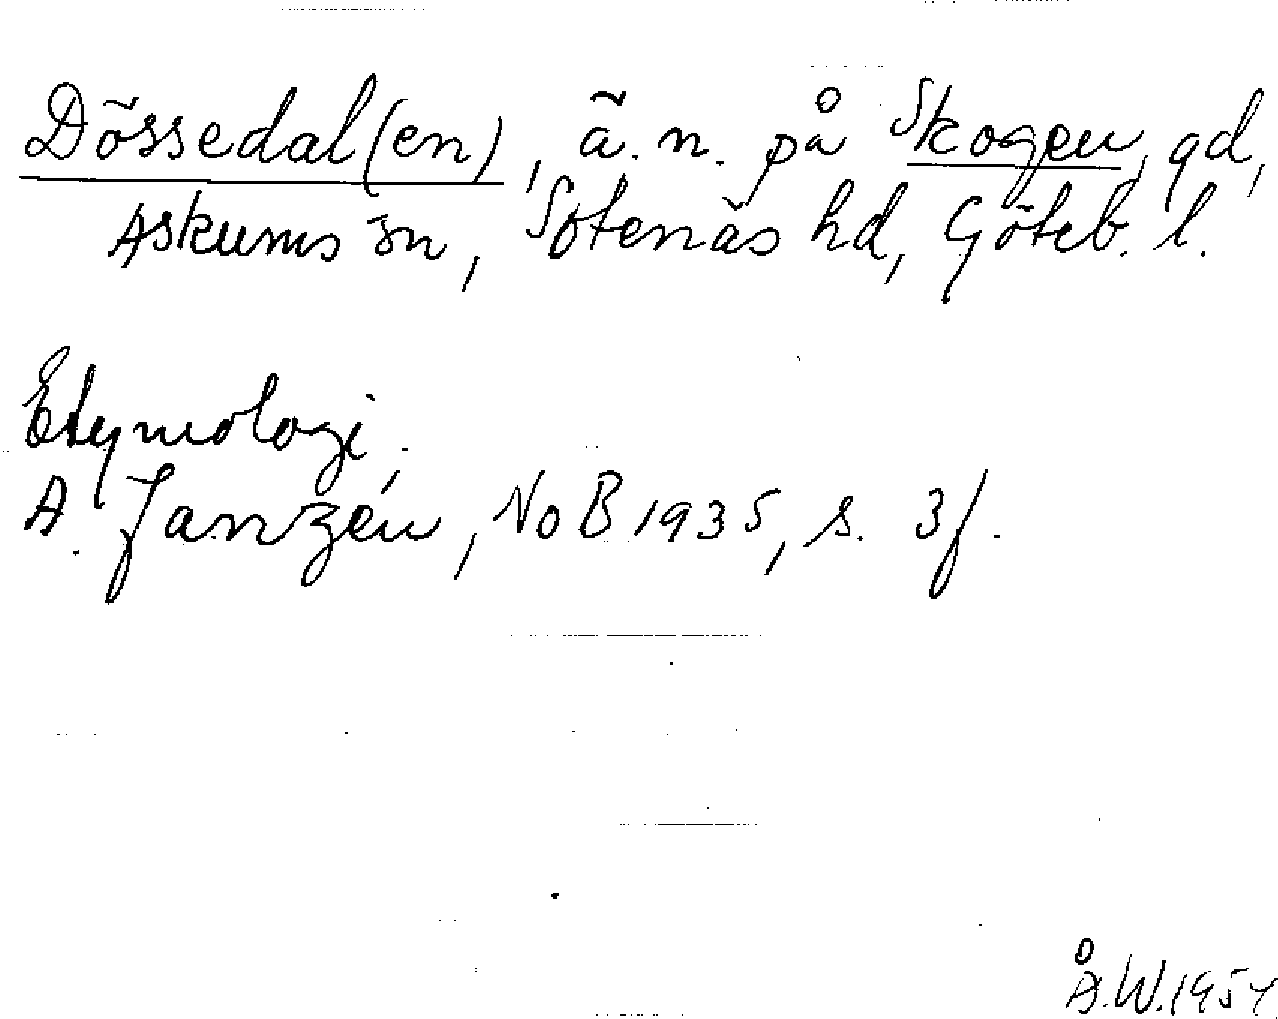 Dössedal(en), ä.n. på Skogen, gd,
Askums sn, Sotenäs hd, Göteb. l.
Etymologi.
A. Janzén, NoB 1935, s. 3f.
Å.W.1954.